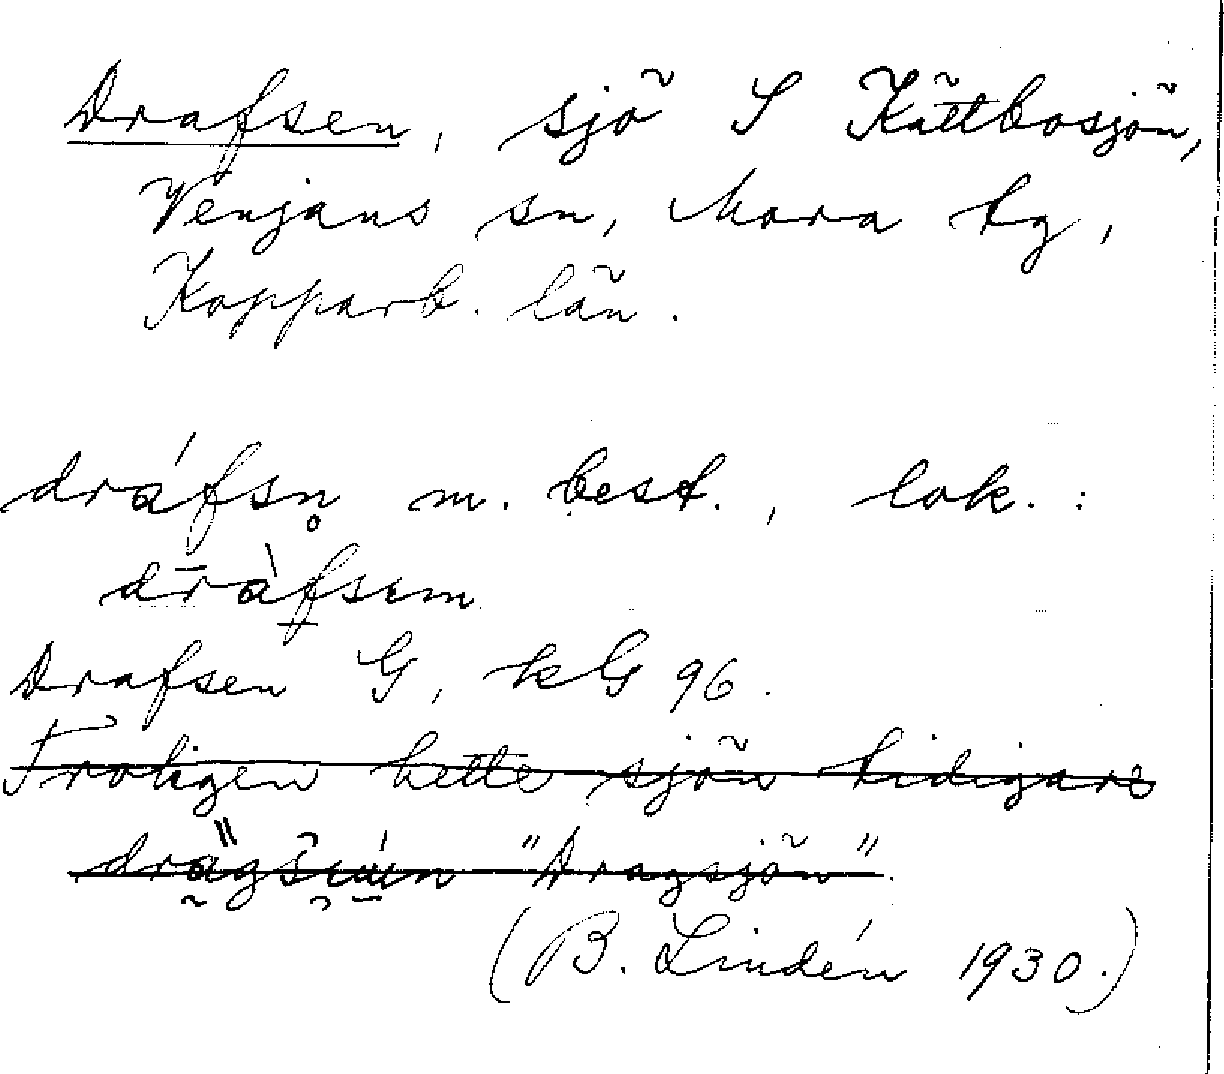 Drafsen, sjö S Kättbosjön,
Venjans sn, Mora tg,
Kopparb. län.
dráfsn̥ m. best., lok.:
dràfsem
Drafsen G, kG 96.
Troligen hette sjön tidigare
"Dragsjön".
(B. Lindén 1930.)